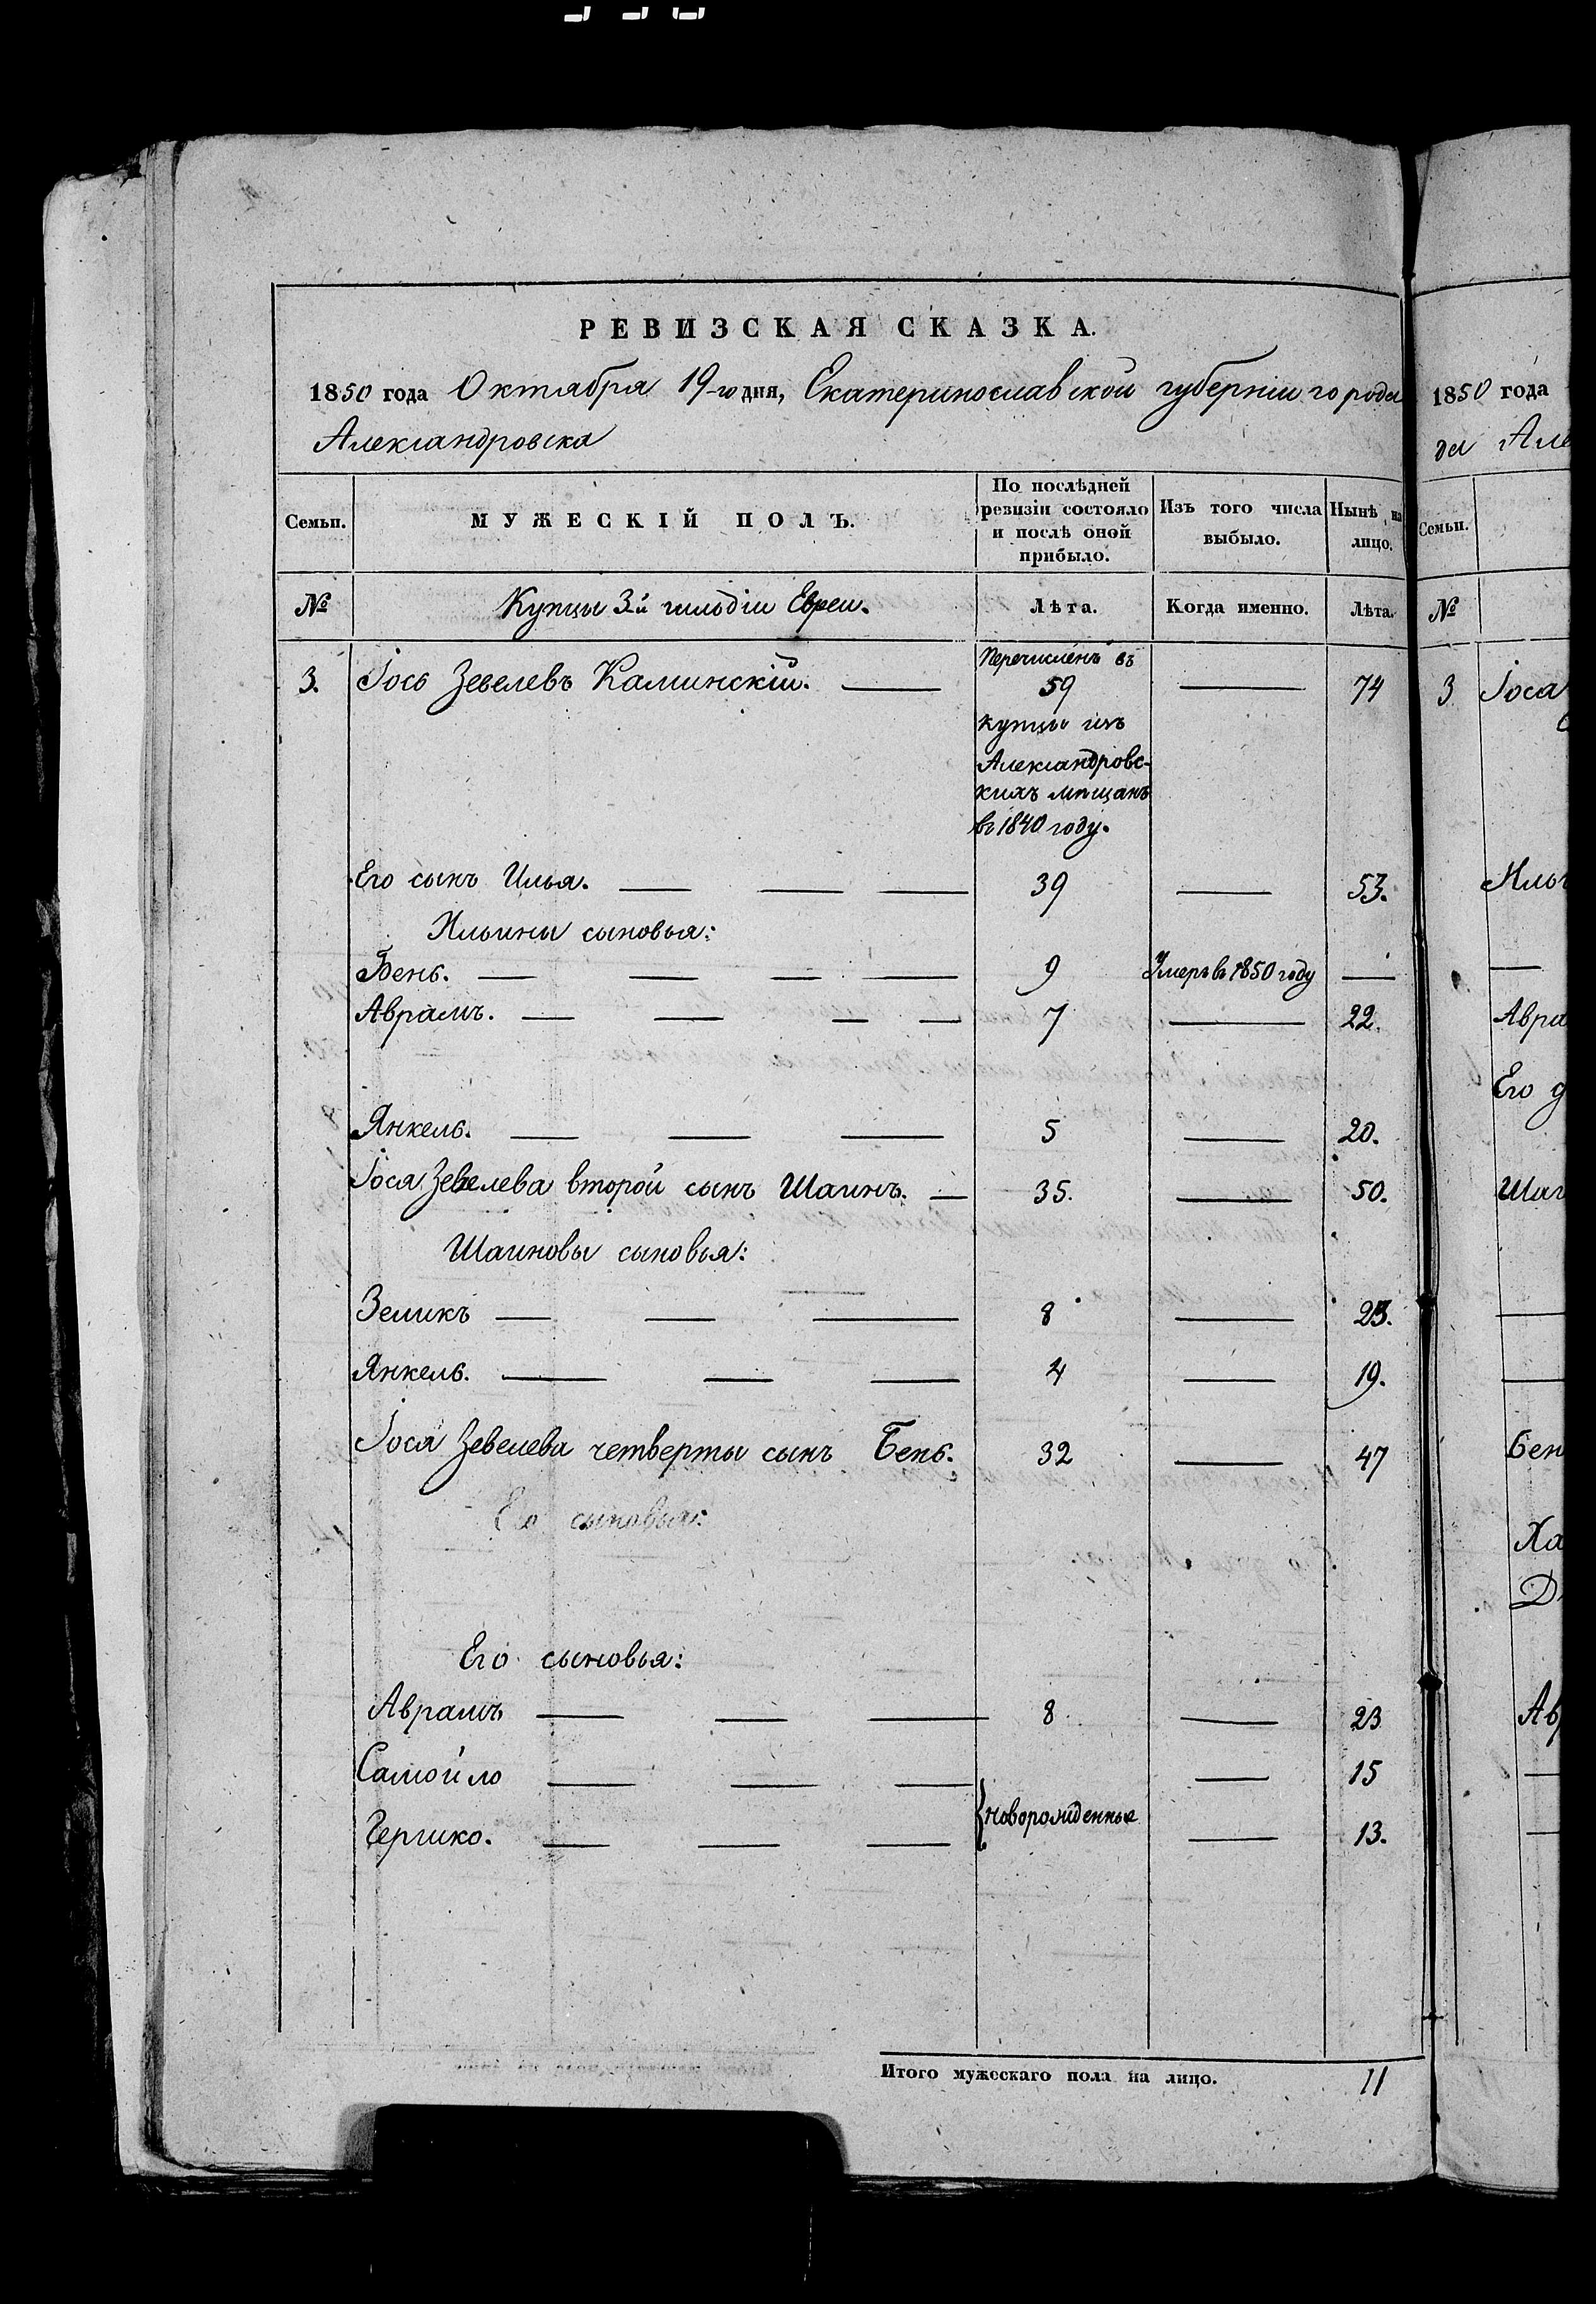 РЕВИЗСКАЯ СКАЗКА.
1850 года Октября 19-го дня, Екатеринославской губерніи города
Александровска
Семьи.
МУЖЕСКІЙ ПОЛЪ.
По послѣдней
ревизіи состояло
и послѣ оной
прибыло.
Изъ того числа
выбыло.
Нынѣ на
лицо.
№
Купцы 3й гильдіи Евреи.
Лѣта.
Когда именно.
Лѣта.
3. Іось Зевелевъ Каминскій. — Перечисленъ въ
59 — 74
купцы изъ
Александровс-
кихъ мѣщанъ
въ 1840 году.
Его сынъ Илья. — — — 39 — 53.
Ильины сыновья:
Бень. — — — — 9 Умеръ въ 1850 году —
Аврамъ. — — — — 7 — 22.
Янкель. — — — 5 — 20.
Іося Зевелева второй сынъ Шаинъ. — 35. — 50.
Шаиновы сыновья:
Зеликъ — — — 8 — 23.
Янкель. — — — 4 — 19.
Іося Зевелева четверты сынъ Бень. 32 — 47
Его сыновья:
Его сыновья:
Аврамъ — — — 8 — 23
Самойло — — — — 15
{новорожденные
Гершко. — — — — 13.
Итого мужескаго пола на лицо. 11
1850 года
да Але
Семьи.
№
3 Іося
Иль
—
Авра
Его д
Шаи
—
—
Бен
Ха
Д
Ав
—
—